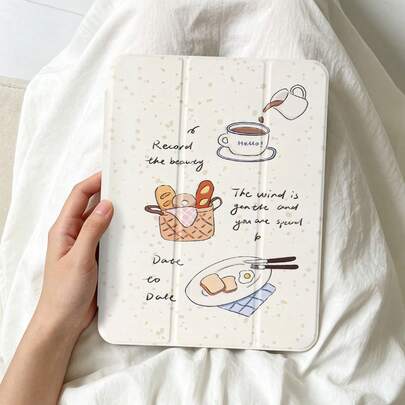 Hello!
Record
the beauty
The wind is
gentle and
you are special
Date
to
Date